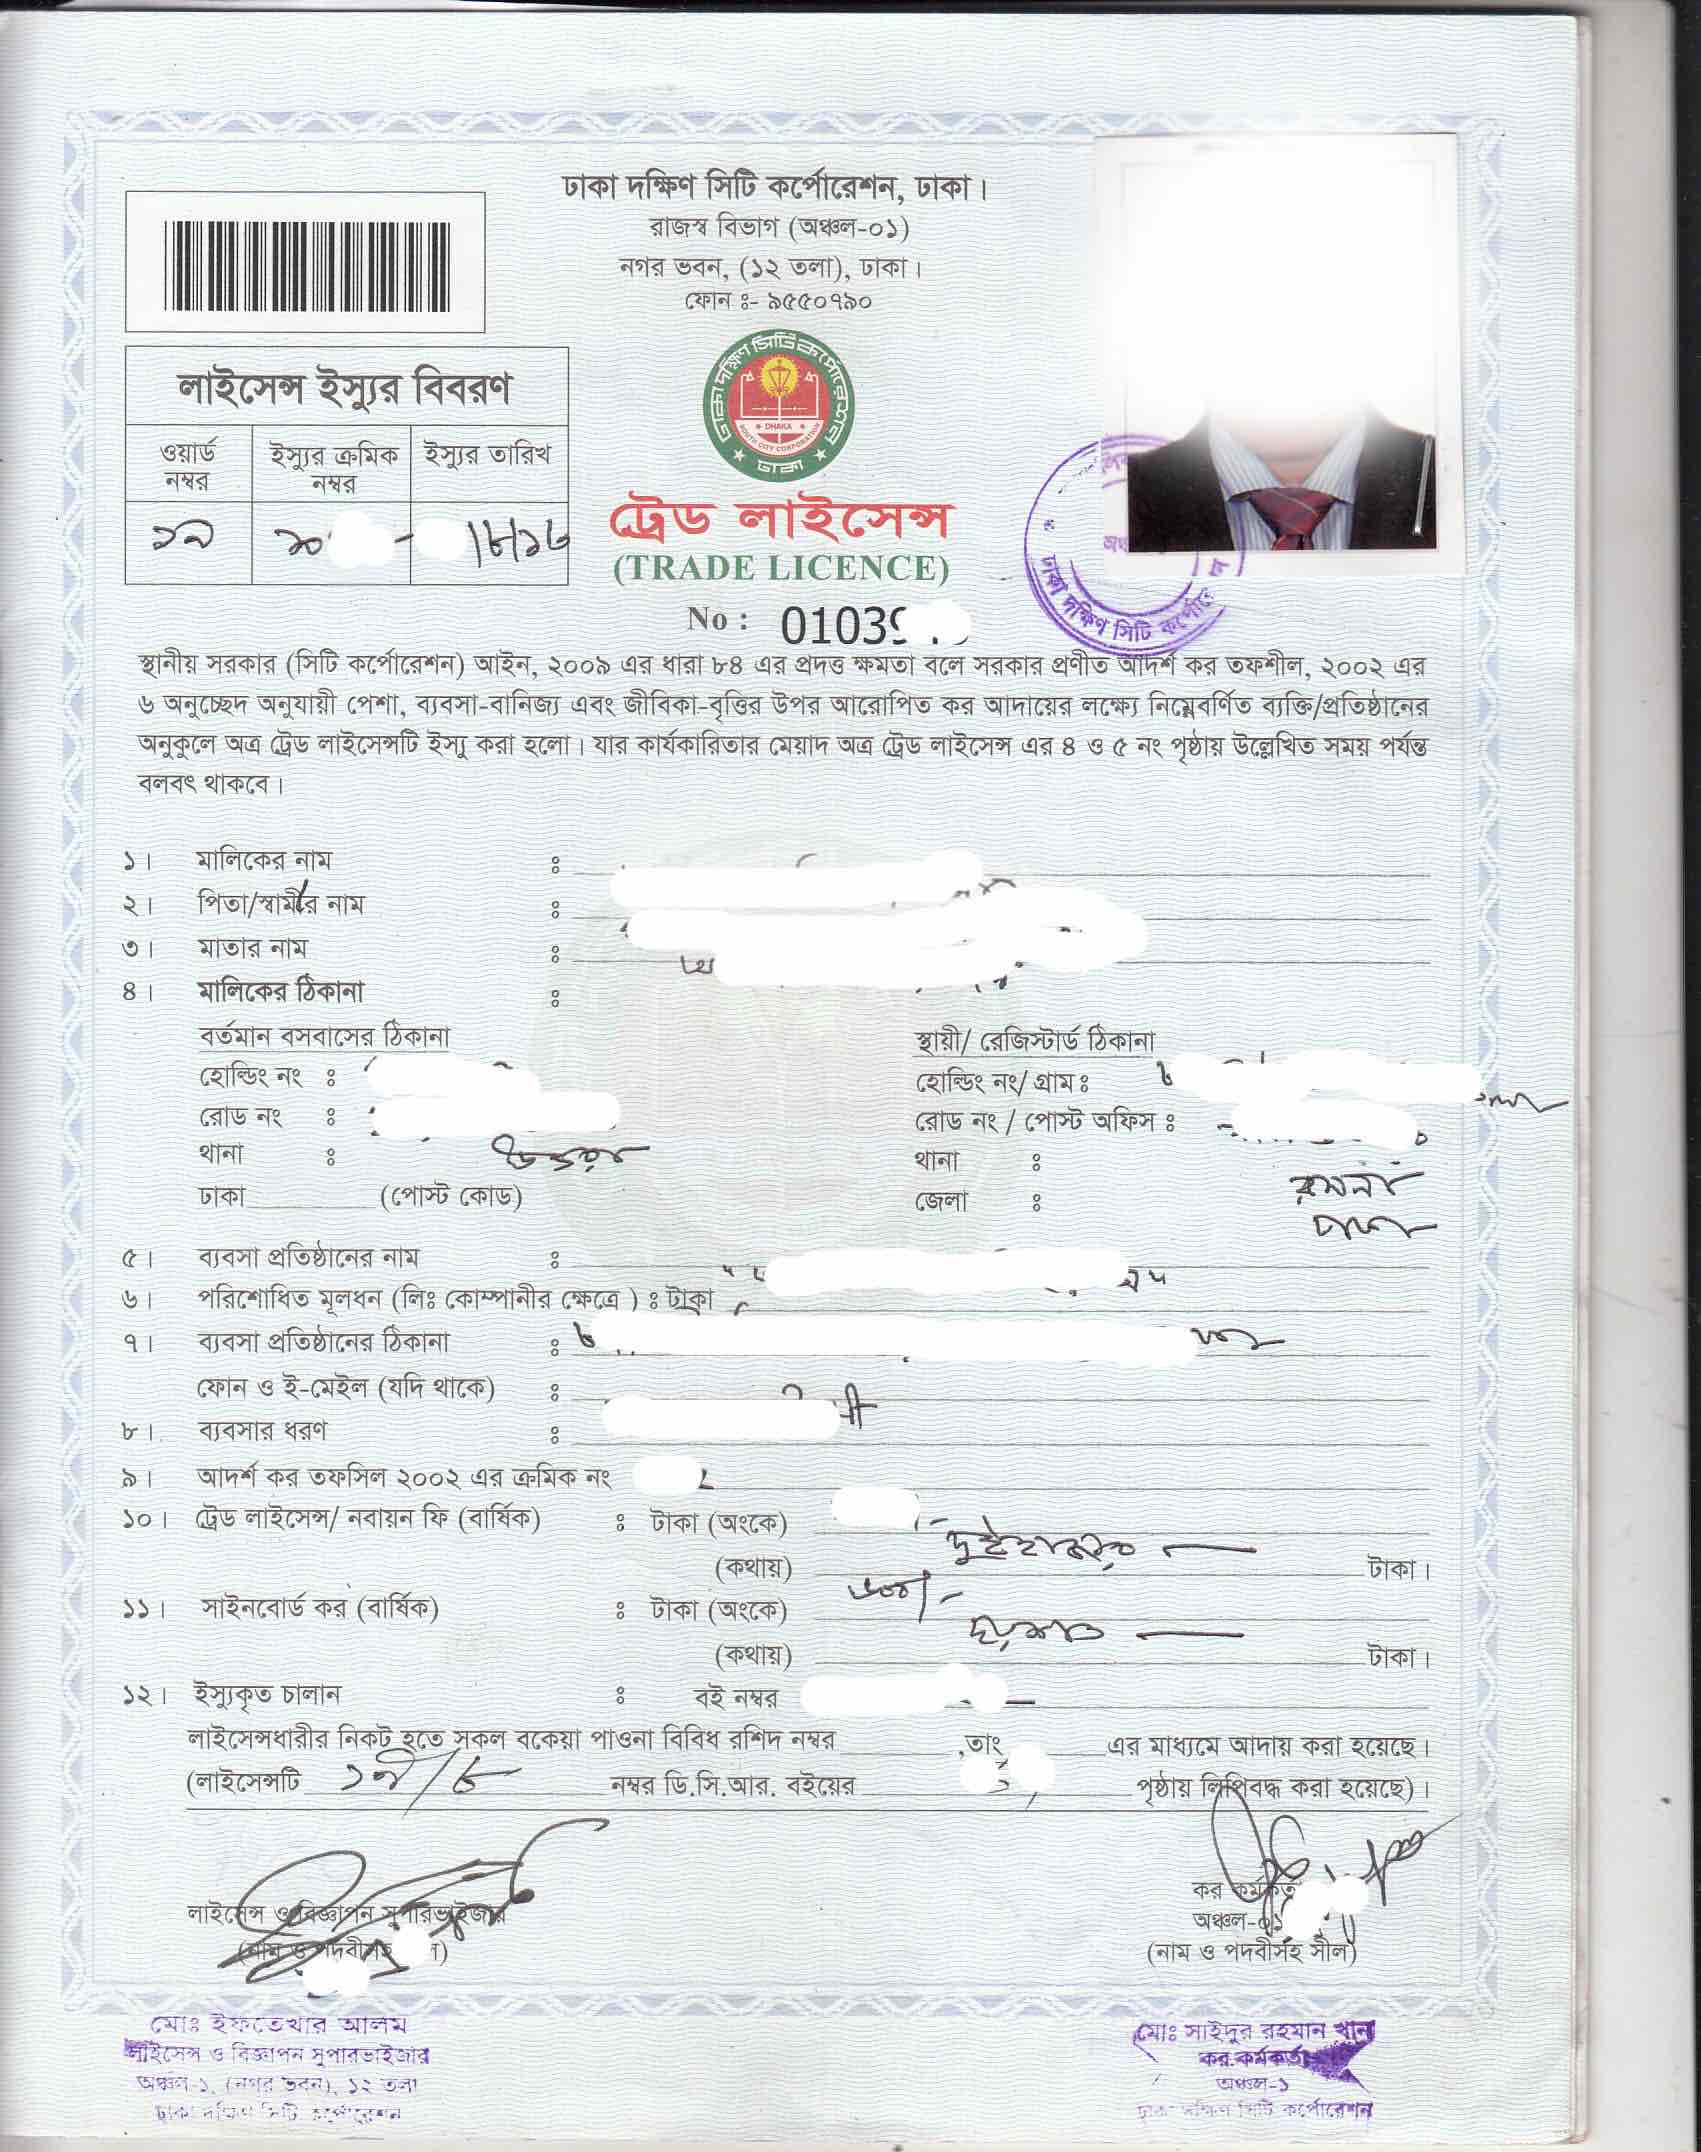 ঢাকা দক্ষিণ সিটি কর্পোরেশন, ঢাকা।
রাজস্ব বিভাগ (অঞ্চল-০১)
নগর ভবন, (১২ তলা), ঢাকা।
ফোন ঃ- ৯৫৫০৭৯০
লাইসেন্স ইস্যুর বিবরণ
ওয়ার্ড নম্বর
ইস্যুর ক্রমিক নম্বর
ইস্যুর তারিখ
১৯
ঢাকা দক্ষিণ সিটি কর্পোরেশন
DHAKA
SOUTH CITY CORPORATION
ঢাকা
ট্রেড লাইসেন্স
(TRADE LICENCE)
No : 0103
ঢাকা দক্ষিণ সিটি কর্পোরে
স্থানীয় সরকার (সিটি কর্পোরেশন) আইন, ২০০৯ এর ধারা ৮৪ এর প্রদত্ত ক্ষমতা বলে সরকার প্রণীত আদর্শ কর তফশীল, ২০০২ এর
৬ অনুচ্ছেদ অনুযায়ী পেশা, ব্যবসা-বানিজ্য এবং জীবিকা-বৃত্তির উপর আরোপিত কর আদায়ের লক্ষ্যে নিম্নেবর্ণিত ব্যক্তি/প্রতিষ্ঠানের
অনুকুলে অত্র ট্রেড লাইসেন্সটি ইস্যু করা হলো। যার কার্যকারিতার মেয়াদ অত্র ট্রেড লাইসেন্স এর ৪ ও ৫ নং পৃষ্ঠায় উল্লেখিত সময় পর্যন্ত
বলবৎ থাকবে।
১। মালিকের নাম ঃ
২। পিতা/স্বামীর নাম ঃ
৩। মাতার নাম ঃ
৪। মালিকের ঠিকানা ঃ
বর্তমান বসবাসের ঠিকানা
হোল্ডিং নং ঃ
রোড নং ঃ
থানা ঃ উত্তরা
ঢাকা (পোস্ট কোড)
স্থায়ী/ রেজিস্টার্ড ঠিকানা
হোল্ডিং নং/ গ্রাম ঃ
রোড নং / পোস্ট অফিস ঃ
থানা ঃ রমনা
জেলা ঃ ঢাকা
৫। ব্যবসা প্রতিষ্ঠানের নাম ঃ
৬। পরিশোধিত মূলধন (লিঃ কোম্পানীর ক্ষেত্রে ) ঃ টাকা
৭। ব্যবসা প্রতিষ্ঠানের ঠিকানা ঃ
ফোন ও ই-মেইল (যদি থাকে) ঃ
৮। ব্যবসার ধরণ ঃ
৯। আদর্শ কর তফসিল ২০০২ এর ক্রমিক নং
১০। ট্রেড লাইসেন্স/ নবায়ন ফি (বার্ষিক) ঃ টাকা (অংকে)
(কথায়) দুইহাজার টাকা।
১১। সাইনবোর্ড কর (বার্ষিক) ঃ টাকা (অংকে) ৬০০/-
(কথায়) ছয়শত টাকা।
১২। ইস্যুকৃত চালান ঃ বই নম্বর
লাইসেন্সধারীর নিকট হতে সকল বকেয়া পাওনা বিবিধ রশিদ নম্বর ,তাং এর মাধ্যমে আদায় করা হয়েছে।
(লাইসেন্সটি ১৯/৮ নম্বর ডি.সি.আর. বইয়ের পৃষ্ঠায় লিপিবদ্ধ করা হয়েছে)।
লাইসেন্স ও বিজ্ঞাপন সুপারভাইজার
(নাম ও পদবীসহ
কর কর্মকর্তা
অঞ্চল-০১
(নাম ও পদবীসহ সীল)
মোঃ ইফতেখার আলম
লাইসেন্স ও বিজ্ঞাপন সুপারভাইজার
অঞ্চল-১, (নগর ভবন), ১২ তলা
ঢাকা দক্ষিণ সিটি কর্পোরেশন
মোঃ সাইদুর রহমান খান
কর কর্মকর্তা
অঞ্চল-১
ঢাকা দক্ষিণ সিটি কর্পোরেশন